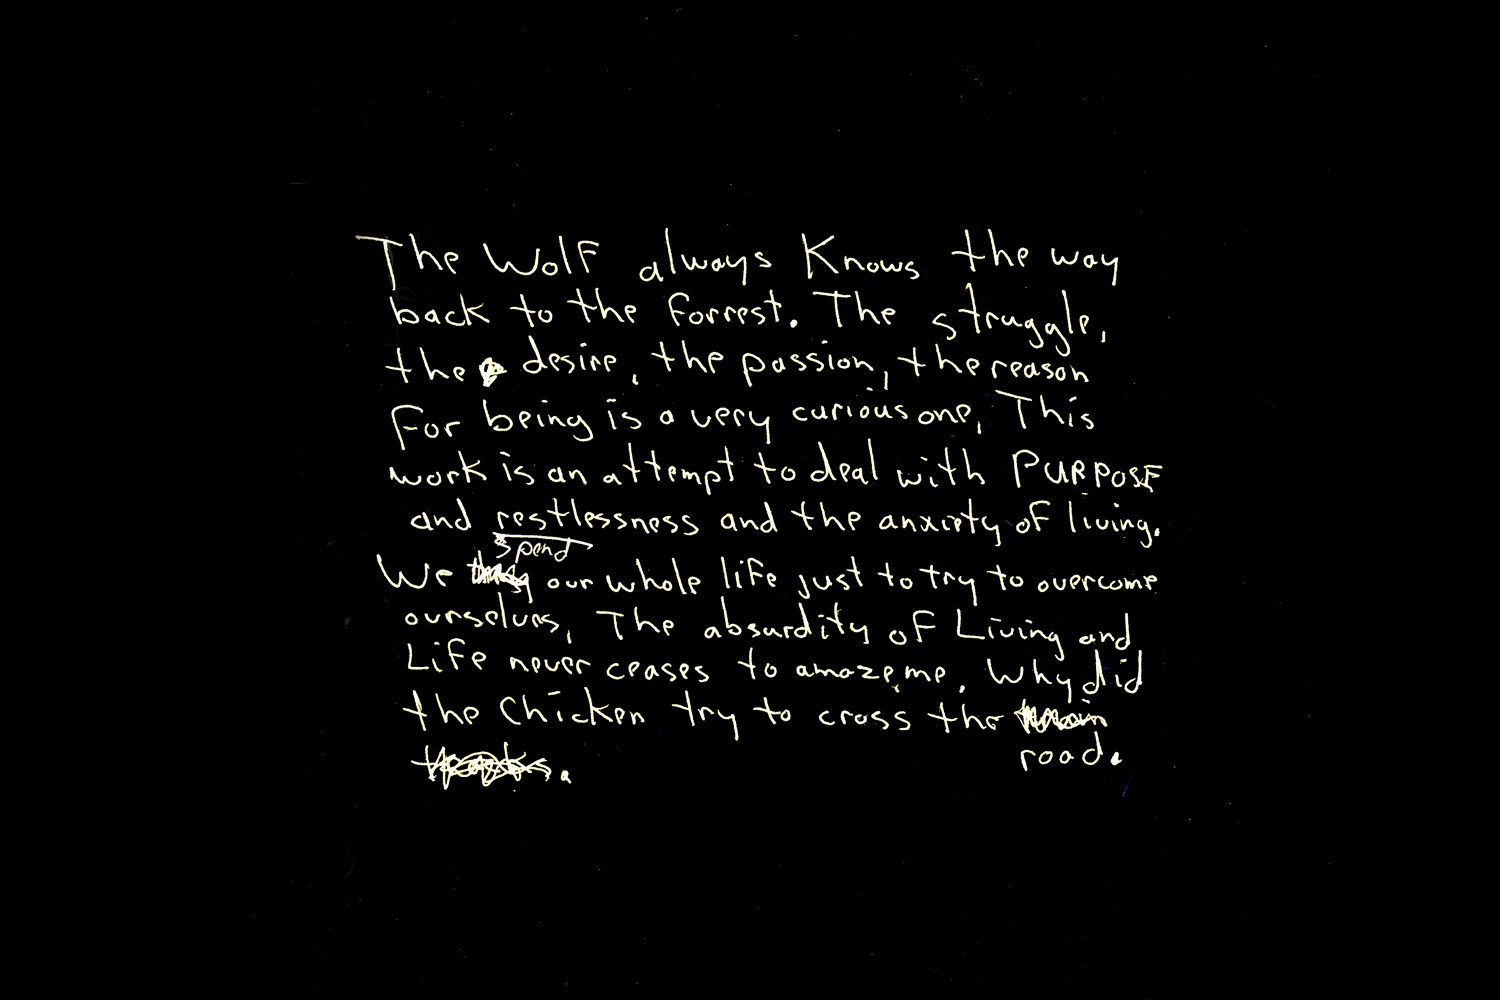 The Wolf always Knows the way
back to the forrest. The struggle,
the desire, the passion, the reason
For being is a very curious one, This
work is an attempt to deal with PURPOSE
and restlessness and the anxiety of living.
spend
We our whole life just to try to overcome
ourselves, The absurdity of Living and
Life never ceases to amaze me. Why did
the Chicken try to cross the
road.